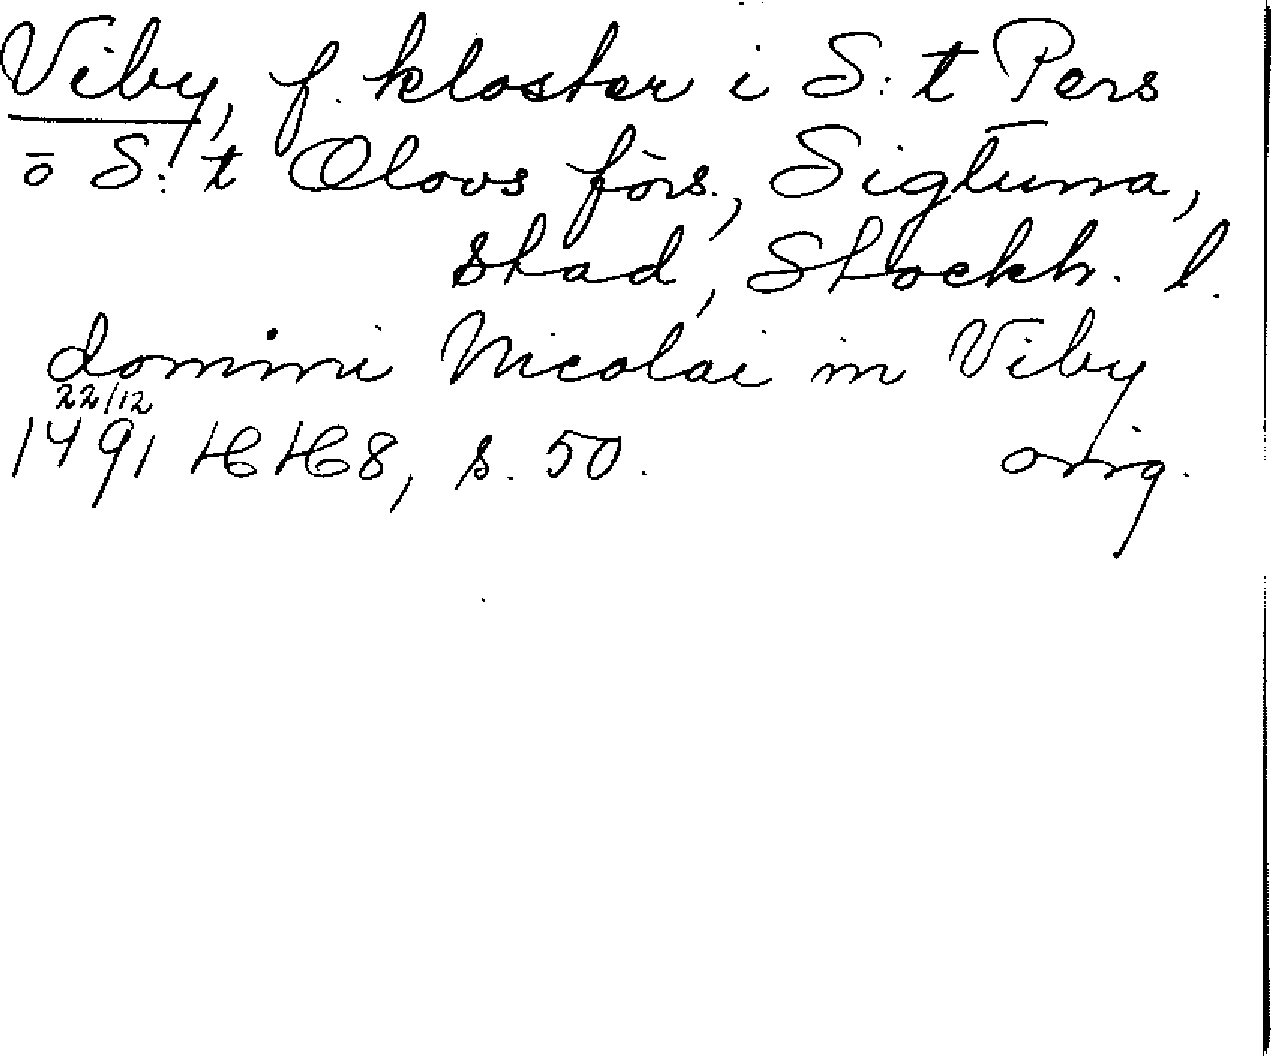 Viby, f. kloster i S:t Pers
o S:t Olovs förs., Sigtuna,
stad, Stockh. l.
domini Nicolai in Viby
22/12
1491 HH8, s. 50. orig.